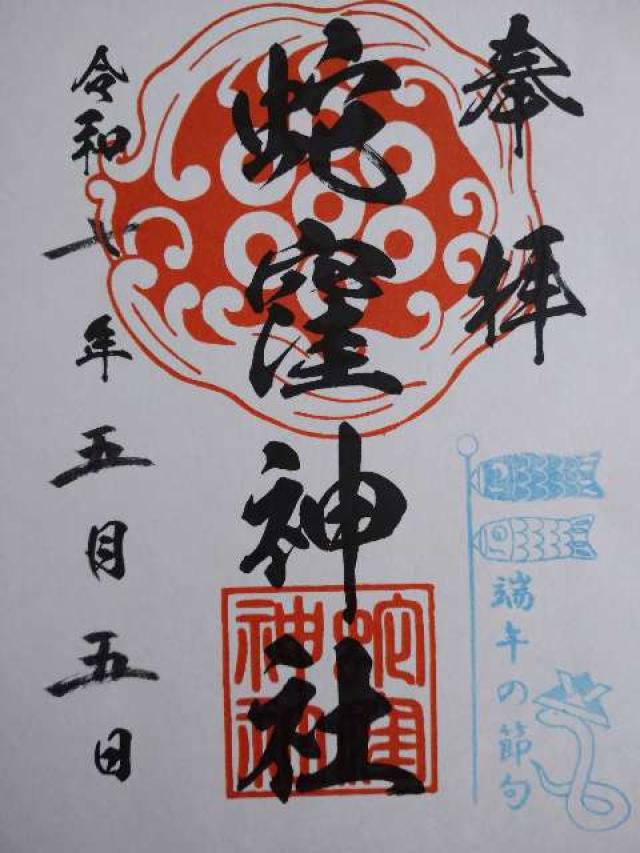 奉拝
端午の節句
蛇窪神社
蛇窪
神社
令和七年五月五日